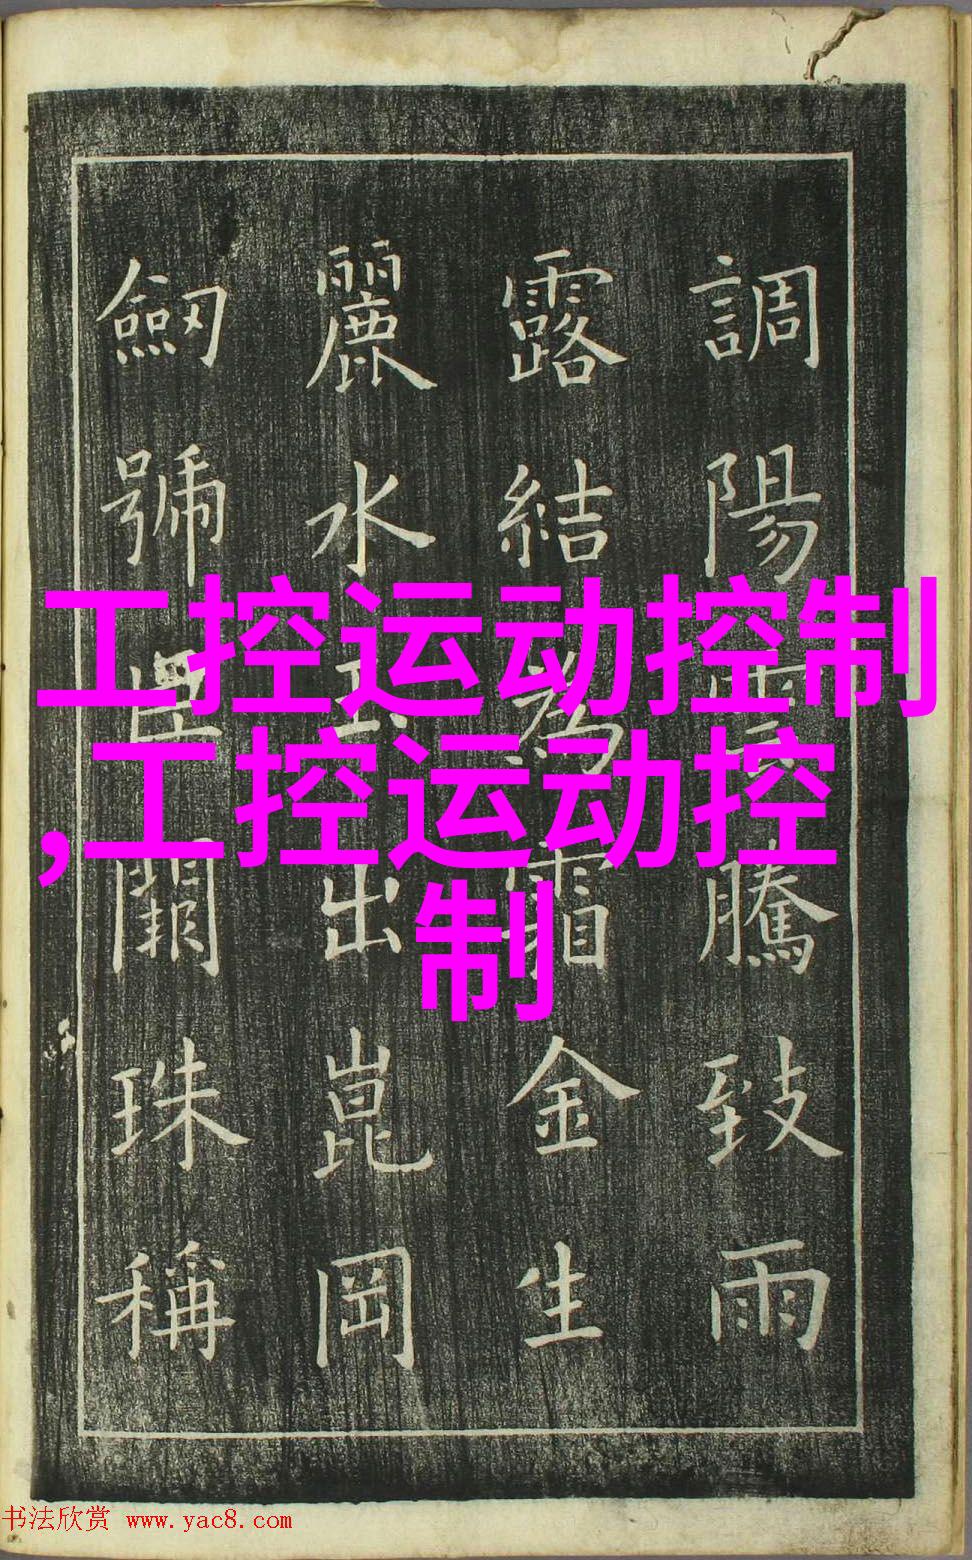 調陽雲騰致雨
露結為霜金生
麗水出崑岡
劒號巨闕珠稱
工控运动控制
,工控运动控
制
书法欣赏 www.yac8.com